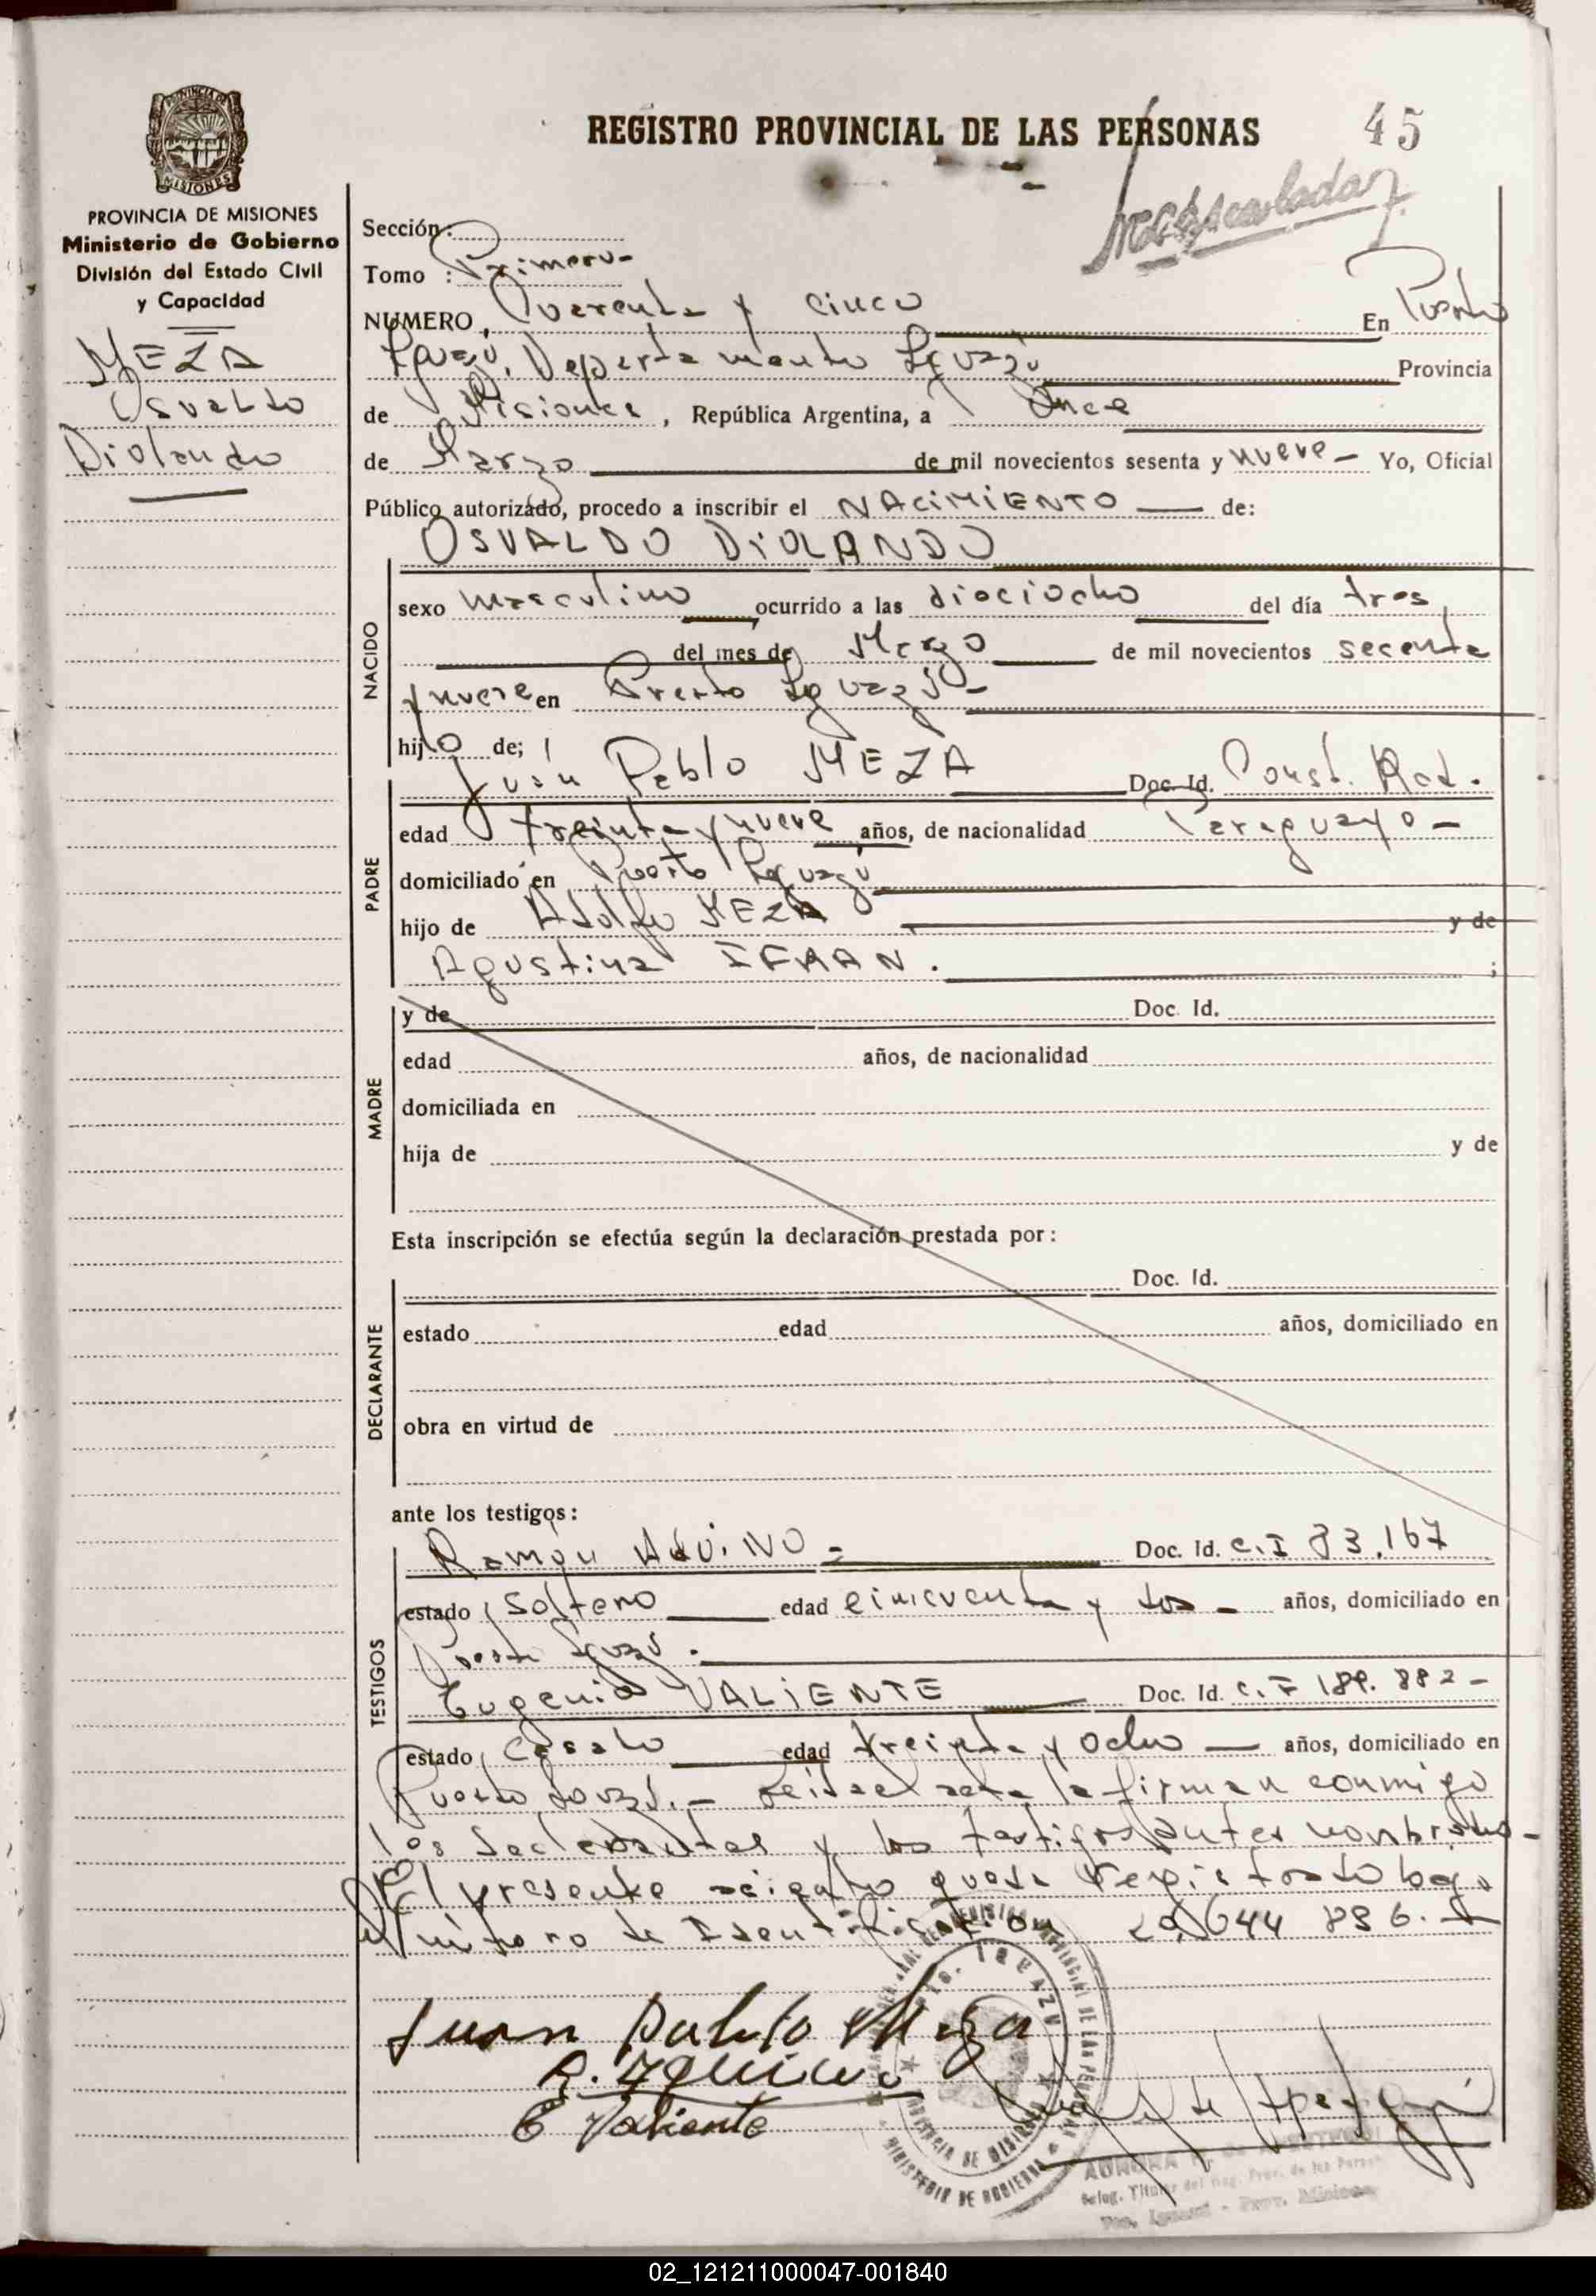 PROVINCIA DE MISIONES
REGISTRO PROVINCIAL DE LAS PERSONAS
45
PROVINCIA DE MISIONES
Ministerio de Gobierno
División del Estado Civil
y Capacidad
MEZA
Osvaldo
Diolando
Sección:
Tomo : Primero-
NUMERO, Cuarenta y cinco En Puerto
Iguazú, Departamento Iguazú Provincia
de Misiones, República Argentina, a Once
de Marzo de mil novecientos sesenta y nueve - Yo, Oficial
Público autorizado, procedo a inscribir el NACIMIENTO de:
OSVALDO DIOLANDO
NACIDO
sexo masculino ocurrido a las dieciocho del día tres
del mes de Marzo de mil novecientos secenta
y nueve en Puerto Iguazú-
hijo de;
PADRE
Juan Pablo MEZA Doc. Id. Const. Rad.
edad treinta y nueve años, de nacionalidad Paraguayo-
domiciliado en Puerto Iguazú
hijo de Adolfo MEZA y de
Agustina IFRAN. ;
MADRE
y de Doc. Id.
edad años, de nacionalidad
domiciliada en
hija de y de
Esta inscripción se efectúa según la declaración prestada por:
DECLARANTE
Doc. Id.
estado edad años, domiciliado en
obra en virtud de
ante los testigos:
TESTIGOS
Ramón AQUINO- Doc. Id. C.I 83.167
estado soltero edad cincuenta y dos - años, domiciliado en
Puerto Iguazú.
Eugenio VALIENTE Doc. Id. C.I 189.882-
estado casado edad treinta y ocho años, domiciliado en
Puerto Iguazú.- Leída el acta la firman conmigo
los declarantes y los testigos antes nombrados-
El presente queda registrado bajo
número de Identificación 20.644 896.
Juan pablo Meza
R. Aquino
E Valiente
PROVINCIA DE MISIONES
MINISTERIO DE GOBIERNO
AURORA
02_121211000047-001840